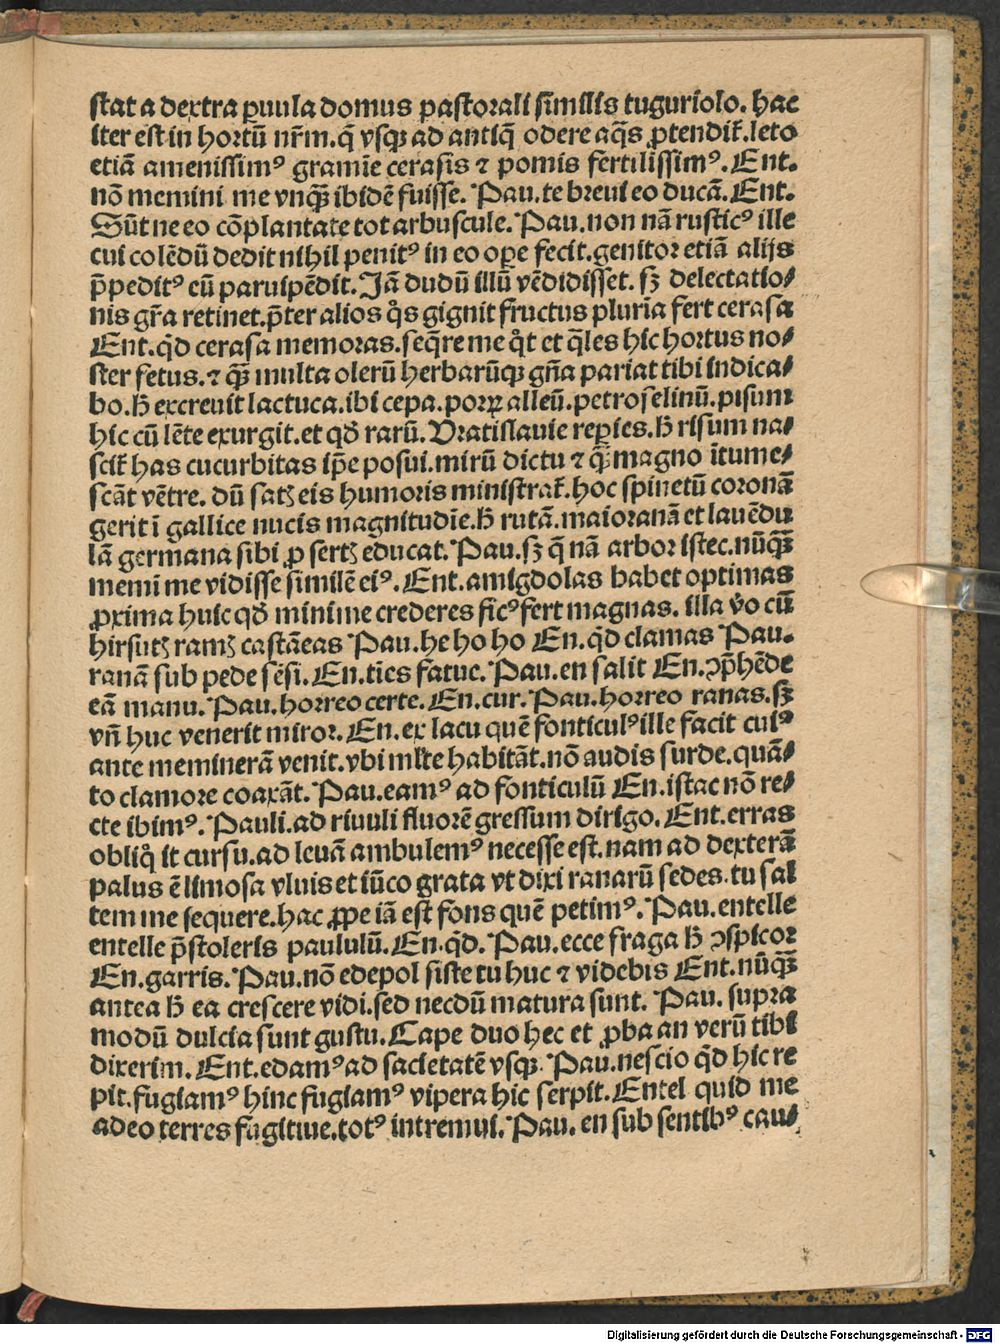 stat a dextra ꝑuula domus pastorali similis tuguriolo. hac
iter est in hortū nr̄m. q̄ vsqꝫ ad antiq̄ odere aq̄s ꝓtendit̄. leto
etiā amenissimꝰ gramīe cerasis ⁊ pomis fertilissimꝰ. Ent.
nō memini me vnqꝫ̄ ibidē fuisse. Pau. te breui eo ducā. Ent.
Sūt ne eo cōplantate tot arbuscule. Pau. non nā rusticꝰ ille
cui colēdū dedit nihil penitꝰ in eo oꝑe fecit. genitor etiā alijs
p̄peditꝰ eū paruipēdit. Iā dudū illū vēdidisset. sꝫ delectatio⸗
nis gr̄a retinet. p̄ter alios q̊s gignit fructus plurīa fert cerasa
Ent. qd̄ cerasa memoras. seq̄re me q̊t et q̄les hic hortus no⸗
ster fetus. ⁊ qꝫ̄ multa olerū herbarūqꝫ gn̄a pariat tibi indica⸗
bo. h̄ excreuit lactuca. ibi cepa. porrꝝ alleū. petroselinū. pisum
hic cū lēte exurgit. et qd̄ rarū. Vratislauie reꝑies. h̄ risum na⸗
scit̄ has cucurbitas ip̄e posui. mirū dictu ⁊ qꝫ̄ magno ītume⸗
scāt vētre. dū satꝫ eis humoris ministrat̄. hoc spinetū coronā
gerit ī gallice nucis magnitudīe. h̄ rutā. maioranā et lauēdu
lā germana sibi ꝓ sertꝫ educat. Pau. sꝫ q̄ nā arbor istec. nūqꝫ̄
memī me vidisse similē eiꝰ. Ent. amigdolas habet optimas
ꝓxima huic qd̄ minime crederes ficꝰ fert magnas. illa v̊o cū
hirsutꝫ ramꝫ castāeas Pau. he ho ho En. qd̄ clamas Pau.
ranā sub pede sēsi. En. tīes fatue. Pau. en salit En. ꝯp̄hēde
eā manu. Pau. horreo certe. En. cur. Pau. horreo ranas. sꝫ
vn̄ huc venerit miror. En. ex lacu quē fonticulꝰ ille facit cuiꝰ
ante meminerā venit. vbi ml̄te habitāt. nō audis surde. quā⸗
to clamore coaxāt. Pau. eamꝰ ad fonticulū En. istac nō re⸗
cte ibimꝰ. Pauli. ad riuuli fluorē gressum dirigo. Ent. erras
obliq̊ it cursu. ad leuā ambulemꝰ necesse est. nam ad dexterā
palus ē limosa vluis et iūco grata vt dixi ranarū sedes. tu sal
tem me sequere. hac ꝓpe iā est fons quē petimꝰ. Pau. entelle
entelle p̄stoleris paululū. En. qd̄. Pau. ecce fraga h̄ ꝯspicor
En. garris. Pau. nō edepol siste tu huc ⁊ videbis Ent. nūqꝫ̄
antea h̄ ea crescere vidi. sed necdū matura sunt. Pau. supra
modū dulcia sunt gustu. Cape duo hec et ꝓba an verū tibi
dixerim. Ent. edamꝰ ad sacietatē vsqꝫ. Pau. nescio qd̄ hic re
pit. fugiamꝰ hinc fugiamꝰ vipera hic serpit. Entel quid me
adeo terres fugitiue. totꝰ intremui. Pau. en sub sentibꝰ cau⸗
Digitalisierung gefördert durch die Deutsche Forschungsgemeinschaft - DFG